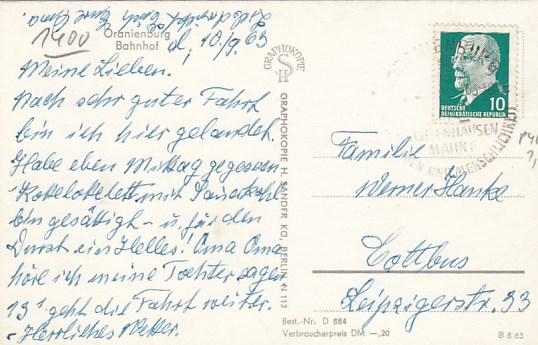 Liebe Grüße Euch Eure Oma
1400
Oranienburg
Bahnhof
d. 10/9 63
Meine Lieben!
Nach sehr guter Fahrt
bin ich hier gelandet.
Habe eben Mittag gegessen
Kottelotelett mit Sauerkohl
bin gesättigt – u. für den
Durst ein Helles! Oma Oma
höre ich meine Tochter sagen
13¹ geht die Fahrt weiter.
– Herrliches Wetter.
GRAPHOKOPIE
SH
GRAPHOKOPIE H. SANDER KG. BERLIN N 113
DEUTSCHE
DEMOKRATISCHE REPUBLIK
10
MAHNT
Familie
Werner Hanke
Cottbus
Leipzigerstr. 33
Best.-Nr. D 884
Verbraucherpreis DM –,20
B 8/63